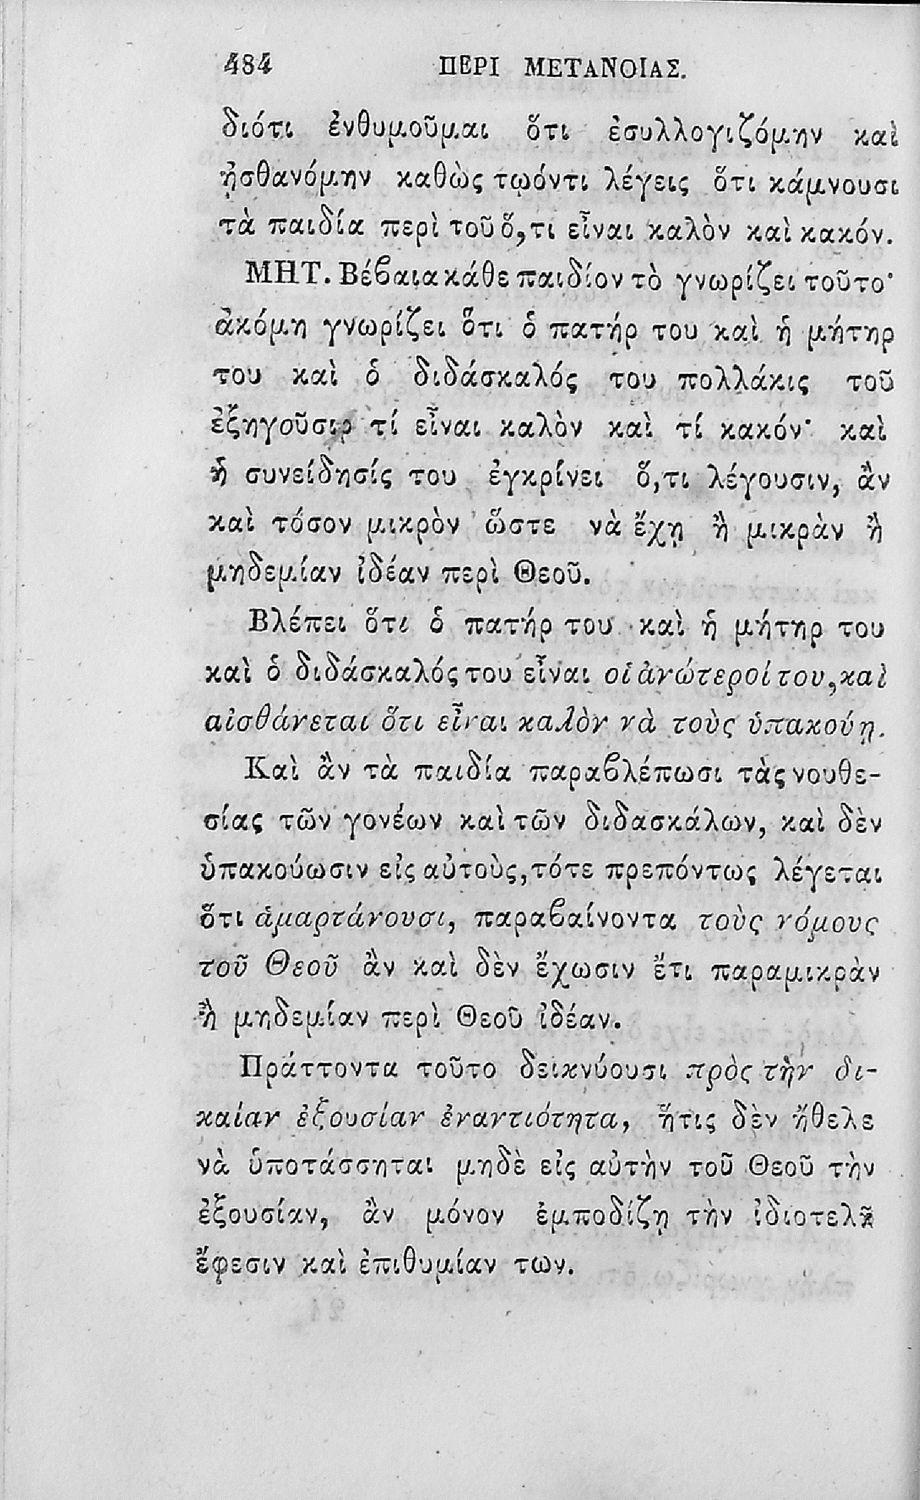 484 ΠΕΡΙ ΜΕΤΑΝΟΙΑΣ.
διότι ἐνθυμοῦμαι ὅτι ἐσυλλογιζόμην καὶ
ᾐσθανόμην καθὼς τῳόντι λέγεις ὅτι κάμνουσι
τὰ παιδία περὶ τοῦ ὅ,τι εἶναι καλὸν καὶ κακόν.
ΜΗΤ. Βέβαια κάθε παιδίον τὸ γνωρίζει τοῦτο·
ἀκόμη γνωρίζει ὅτι ὁ πατήρ του καὶ ἡ μήτηρ
του καὶ ὁ διδάσκαλός του πολλάκις τοῦ
ἐξηγοῦσιν τί εἶναι καλὸν καὶ τί κακόν· καὶ
ἡ συνείδησίς του ἐγκρίνει ὅ,τι λέγουσιν, ἂν
καὶ τόσον μικρὸν ὥστε νὰ ἔχῃ ἢ μικρὰν ἢ
μηδεμίαν ἰδέαν περὶ Θεοῦ.
Βλέπει ὅτι ὁ πατήρ του καὶ ἡ μήτηρ του
καὶ ὁ διδάσκαλός του εἶναι οἱ ἀνώτεροί του, καὶ
αἰσθάνεται ὅτι εἶναι καλὸν νὰ τοὺς ὑπακούῃ.
Καὶ ἂν τὰ παιδία παραβλέπωσι τὰς νουθε-
σίας τῶν γονέων καὶ τῶν διδασκάλων, καὶ δὲν
ὑπακούωσιν εἰς αὐτοὺς, τότε πρεπόντως λέγεται
ὅτι ἁμαρτάνουσι, παραβαίνοντα τοὺς νόμους
τοῦ Θεοῦ ἂν καὶ δὲν ἔχωσιν ἔτι παραμικρὰν
ἢ μηδεμίαν περὶ Θεοῦ ἰδέαν.
Πράττοντα τοῦτο δεικνύουσι πρὸς τὴν δι-
καίαν ἐξουσίαν ἐναντιότητα, ἥτις δὲν ἤθελε
νὰ ὑποτάσσηται μηδὲ εἰς αὐτὴν τοῦ Θεοῦ τὴν
ἐξουσίαν, ἂν μόνον ἐμποδίζῃ τὴν ἰδιοτελῆ
ἔφεσιν καὶ ἐπιθυμίαν των.